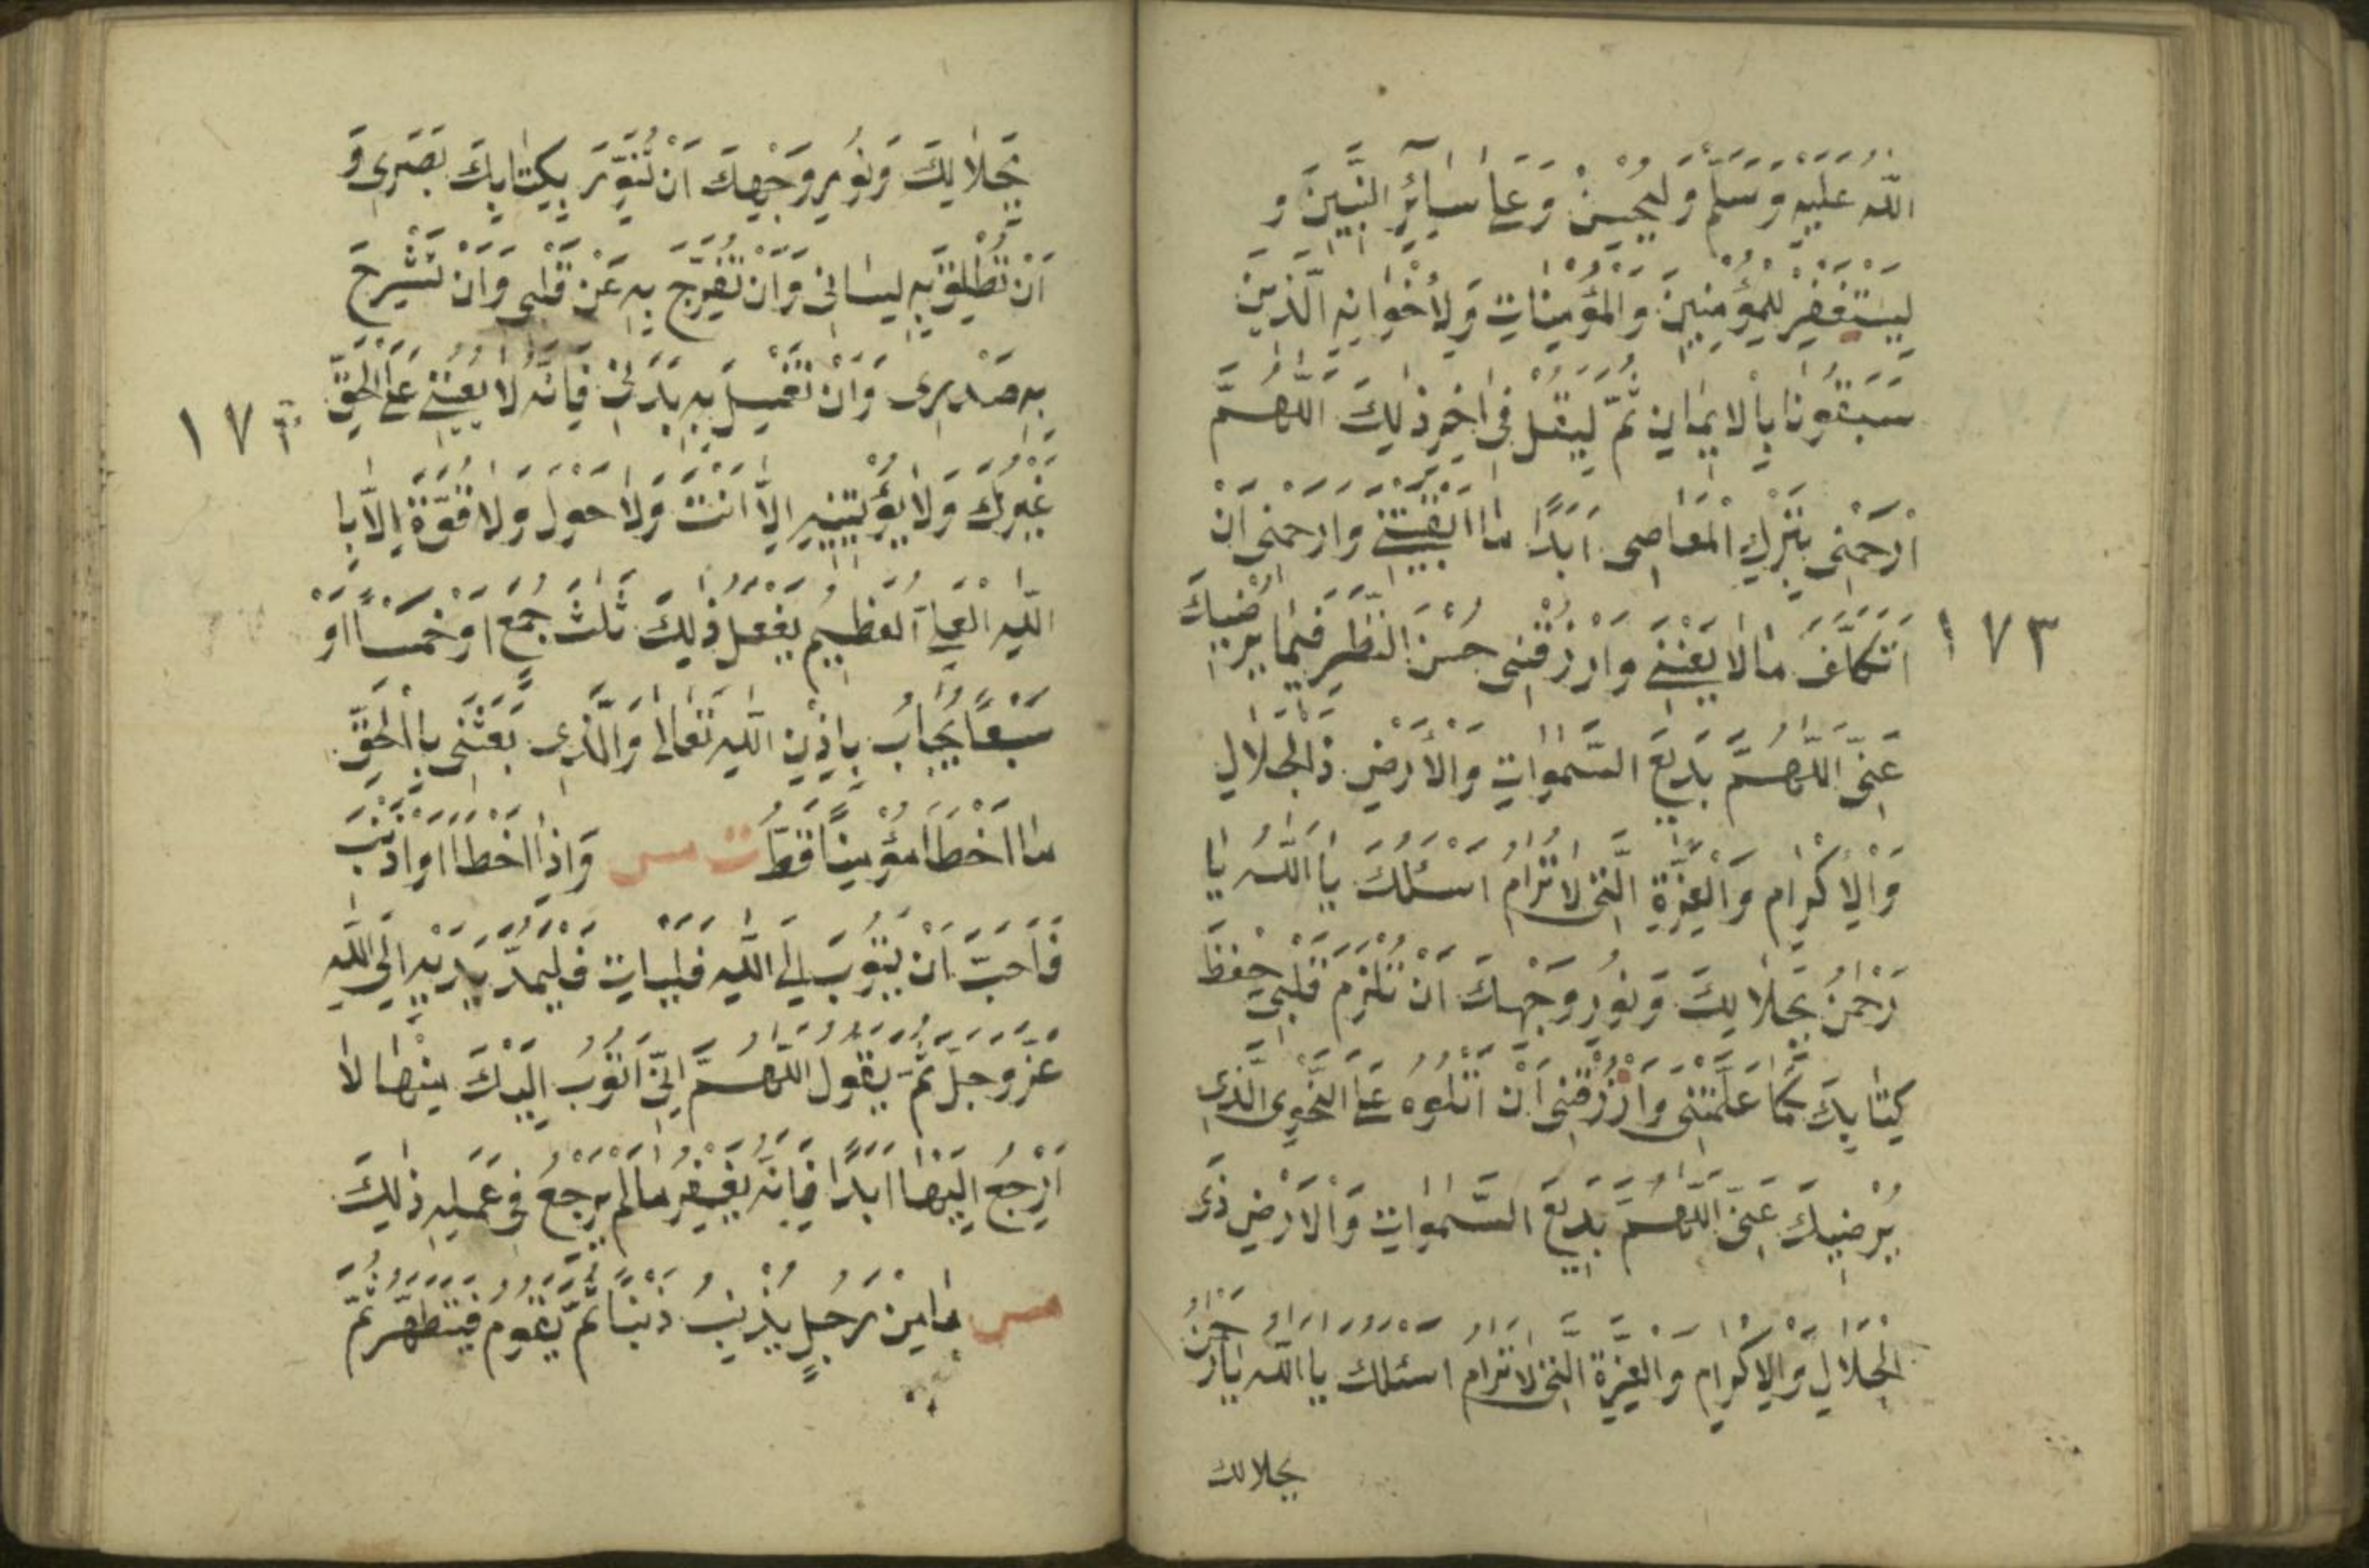 اللّٰهُ عَلَيْهِ وَسَلَّمَ وَلْيُحْسِنْ وَعَلٰى سَائِرِ النَّبِيِّنَ وَ
لْيَسْتَغْفِرْ لِلْمُؤْمِنِينَ وَالْمُؤْمِنَاتِ وَلِاُخْوَانِهِ الَّذِينَ
سَبَقُونَا بِالْاِيمَانِ ثُمَّ لْيَقُلْ فِى اٰخِرِ ذٰلِكَ اَللّٰهُمَّ
ارْحَمْنِى بِتَرْكِ الْمَعَاصِى اَبَدًا مَا اَبْقَيْتَنِى وَارْحَمْنِى اَنْ
١٧٣
اَتَكَلَّفَ مَا لَا يَعْنِينِى وَارْزُقْنِى حُسْنَ النَّظَرِ فِيمَا يُرْضِيكَ
عَنِّى اَللّٰهُمَّ بَدِيعَ السَّمٰوَاتِ وَالْاَرْضِ ذَا الْجَلَالِ
وَالْاِكْرَامِ وَالْعِزَّةِ الَّتِى لَا تُرَامُ اَسْئَلُكَ يَا اَللّٰهُ يَا
رَحْمٰنُ بِجَلَالِكَ وَنُورِ وَجْهِكَ اَنْ تُلْزِمَ قَلْبِى حِفْظَ
كِتَابِكَ كَمَا عَلَّمْتَنِى وَارْزُقْنِى اَنْ اَتْلُوَهُ عَلَى النَّحْوِ الَّذِى
يُرْضِيكَ عَنِّى اَللّٰهُمَّ بَدِيعَ السَّمٰوَاتِ وَالْاَرْضِ ذَى
الْجَلَالِ وَالْاِكْرَامِ وَالْعِزَّةِ الَّتِى لَا تُرَامُ اَسْئَلُكَ يَا اَللّٰهُ يَا رَحْمٰنُ
بجلالك
بِجَلَالِكَ وَنُورِ وَجْهِكَ اَنْ تُنَوِّرَ بِكِتَابِكَ بَصَرِى وَ
اَنْ تُطْلِقَ بِهِ لِسَانِى وَاَنْ تُفَرِّجَ بِهِ عَنْ قَلْبِى وَاَنْ تَشْرَحَ
بِهِ صَدْرِى وَاَنْ تَغْسِلَ بِهِ بَدَنِى فَاِنَّهُ لَا يُعِينُنِى عَلَى الْحَقِّ
غَيْرُكَ وَلَا يُؤْتِينِيهِ اِلَّا اَنْتَ وَلَا حَوْلَ وَلَا قُوَّةَ اِلَّا بِا
اللّٰهِ الْعَلِىِّ الْعَظِيمِ يَفْعَلُ ذٰلِكَ ثَلٰثَ جُمَعٍ اَوْ خَمْسًا اَوْ
سَبْعًا يُجَابُ بِاِذْنِ اللّٰهِ تَعَالٰى وَالَّذِى بَعَثَنِى بِالْحَقِّ
مَا اَخْطَأَ مُؤْمِنًا قَطُّ ت مس وَاِذَا اَخْطَأَ اَوْ اَذْنَبَ
فَاَحَبَّ اَنْ يَتُوبَ اِلَى اللّٰهِ فَلْيَأْتِ فَلْيَمُدَّ يَدَيْهِ اِلَى اللّٰهِ
عَزَّ وَجَلَّ ثُمَّ يَقُولُ اَللّٰهُمَّ اِنِّى اَتُوبُ اِلَيْكَ مِنْهَا لَا
اَرْجِعُ اِلَيْهَا اَبَدًا فَاِنَّهُ يُغْفَرُ مَا لَمْ يَرْجِعْ فِى عَمَلِهِ ذٰلِكَ
مس مَا مِنْ رَجُلٍ يُذْنِبُ ذَنْبًا ثُمَّ يَقُومُ فَيَتَطَهَّرُ ثُمَّ